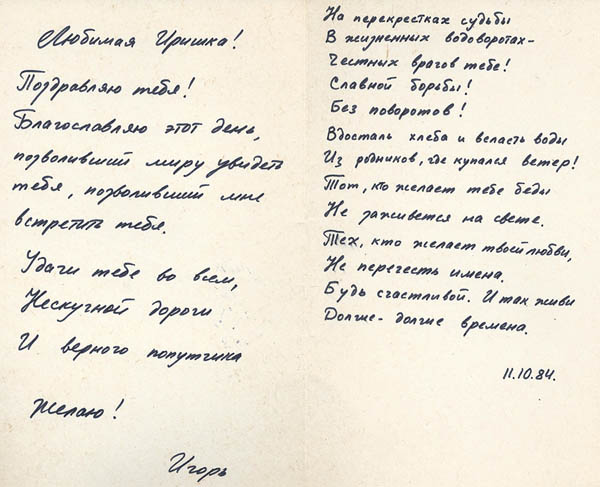 Любимая Иришка!
Поздравляю тебя!
Благославляю этот день,
позволивший миру увидеть
тебя, позволивший мне
встретить тебя.
Удачи тебе во всем,
Нескучной дороги
И верного попутчика
Желаю!
Игорь
На перекрестках судьбы
В жизненных водоворотах-
Честных врагов тебе!
Славной борьбы!
Без поворотов!
Вдосталь хлеба и всласть воды
Из родников, где купался ветер!
Тот, кто желает тебе беды
Не заживется на свете.
Тех, кто желает твоей любви,
Не перечесть имена.
Будь счастливой. И так живи
Долгие-долгие времена.
11.10.84.